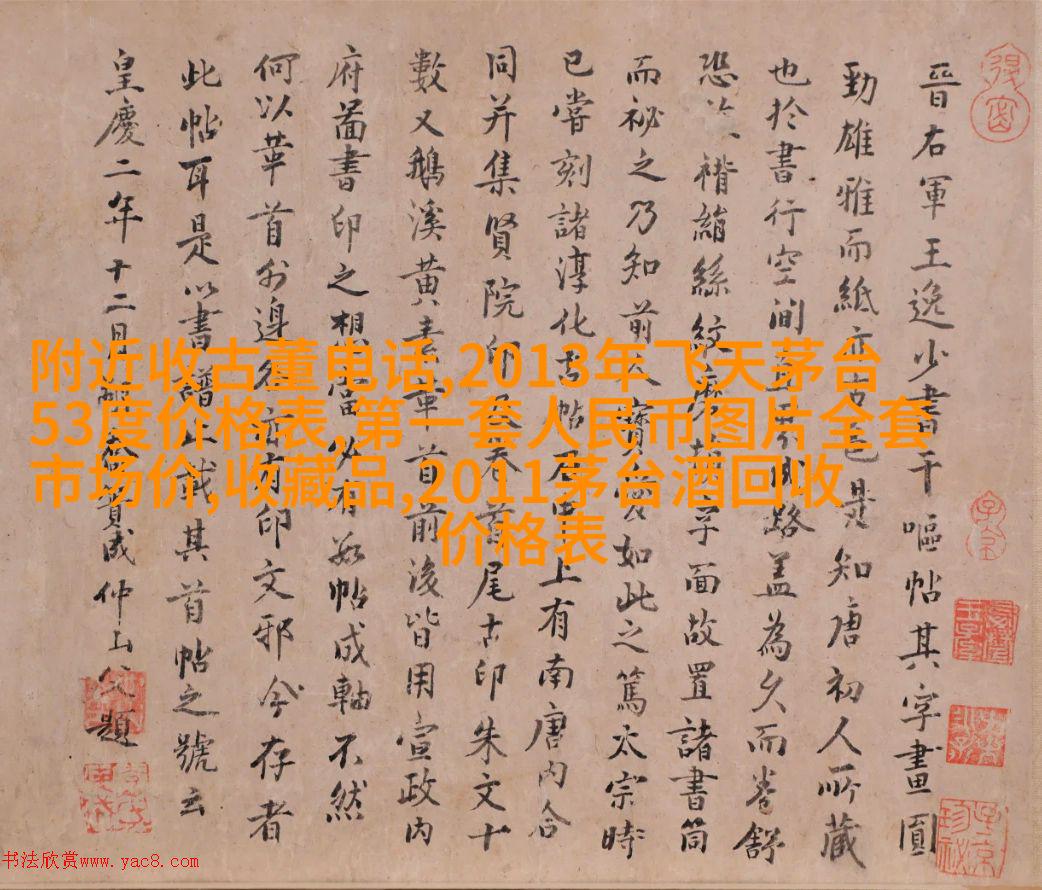 晉右軍王逸少書干嘔帖其字畫圓
勁雄雅而紙亦古是知唐初人所藏
也於書行空澗小路蓋為久而卷舒
恐褙絹絲紋磨字面故置諸書筒
而祕之乃知前人寶愛如此之篤太宗時
已嘗刻諸淳化古帖上有南唐內合
同并集賢院印卷首尾古印朱文十
數又鵝溪黃素首前後皆用宣政內
府圖書印之想當必有數帖成軸不然
何以華首外邊有印文邪今存者
此帖耳是以書譜止載其首帖之號云
皇慶二年十二月賁成仲山父題
附近收古董电话,2013年飞天茅台
53度价格表,第一套人民币图片全套
市场价,收藏品,2011茅台酒回收
价格表
书法欣赏www.yac8.com